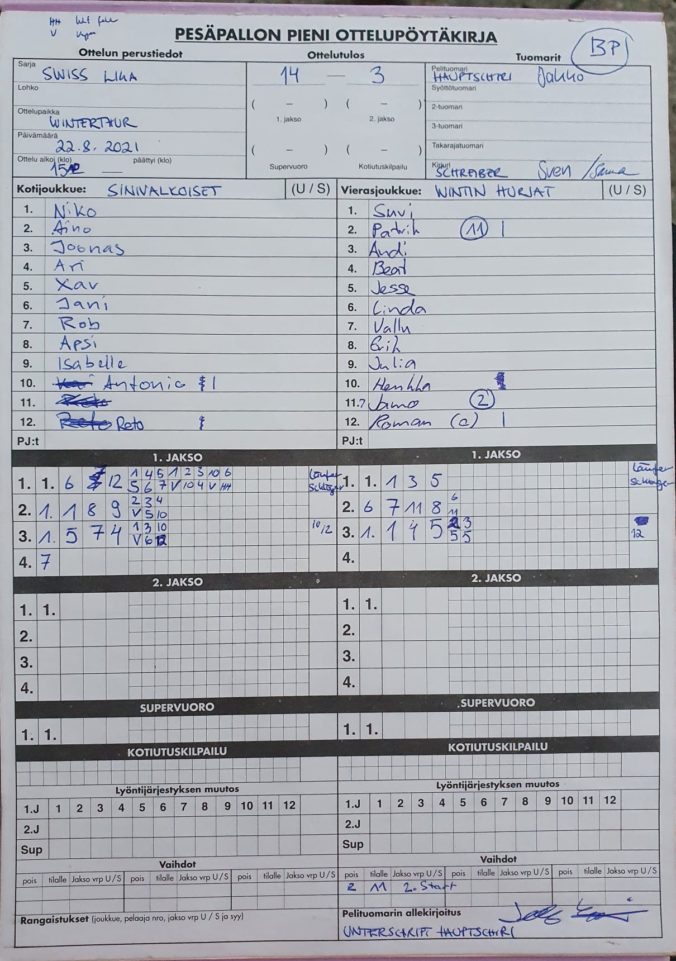 HH
V
PESÄPALLON PIENI OTTELUPÖYTÄKIRJA
BP1
Ottelun perustiedot Ottelutulos Tuomarit
Sarja SWISS LIGA
14 – 3
Pelituomari HAUPTSCHIRI Jakko
Lohko
Syöttötuomari
( – ) ( – )
2-tuomari
Ottelupaikka WINTERTHUR
1. jakso 2. jakso
3-tuomari
Päivämäärä 22.8.2021
( – ) ( – )
Takarajatuomari
Ottelu alkoi (klo) päättyi (klo)
Supervuoro Kotiutuskilpailu
Kirjuri SCHREIBER Sven
Kotijoukkue: SINIVALKOISET (U / S)
1. Niko
2. Aino
3. Joonas
4. Ari
5. Xav
6. Jani
7. Rob
8. Apsi
9. Isabelle
10. Antonio
11.
12. Reto
PJ:t
Vierasjoukkue: WINTIN HURJAT (U / S)
1. Suvi
2. Patrik 11 |
3. Andi
4. Beat
5. Jesse
6. Linda
7. Vallu
8. Erik
9. Julia
10. Henkka
11. Jamo 2
12. Roman (c) |
PJ:t
1. JAKSO
Läufer
Schläger
1. 1. 6 7 12 1 4 5 1 2 3 10 6
5 6 7 V 10 4 V HH
2. 1. 1 8 9 2 3 4
V 5 10
3. 1. 5 7 4 1 3 10 10/2
V 6 12
4. 7
2. JAKSO
1. 1.
2.
3.
4.
SUPERVUORO
1. 1.
KOTIUTUSKILPAILU
1. JAKSO
Läufer
Schläger
1. 1. 1 3 5
2. 6 7 11 8 6
11
3. 1. 1 4 5 2 3
5 5 12
4.
2. JAKSO
1. 1.
2.
3.
4.
SUPERVUORO
1. 1.
KOTIUTUSKILPAILU
Lyöntijärjestyksen muutos
1.J 1 2 3 4 5 6 7 8 9 10 11 12
2.J
Sup
Vaihdot
pois tilalle Jakso vrp U / S pois tilalle Jakso vrp U / S pois tilalle Jakso vrp U / S
Lyöntijärjestyksen muutos
1.J 1 2 3 4 5 6 7 8 9 10 11 12
2.J
Sup
Vaihdot
pois tilalle Jakso vrp U / S pois tilalle Jakso vrp U / S pois tilalle Jakso vrp U / S
2 11 2. Start
Rangaistukset (joukkue, pelaaja nro, jakso vrp U / S ja syy)
Pelituomarin allekirjoitus
UNTERSCHRIFT HAUPTSCHIRI